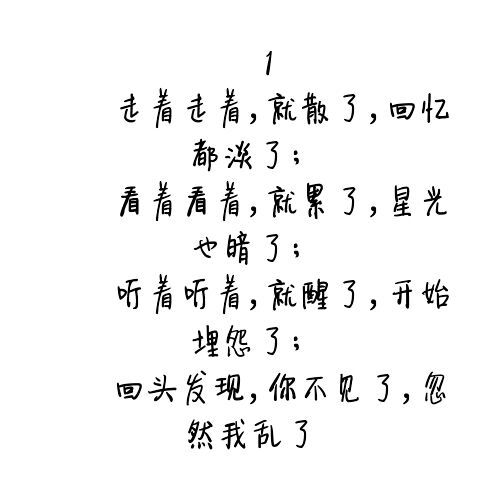 1
走着走着,就散了,回忆
都淡了;
看着看着,就累了,星光
也暗了;
听着听着,就醒了,开始
埋怨了;
回头发现,你不见了,忽
然我乱了